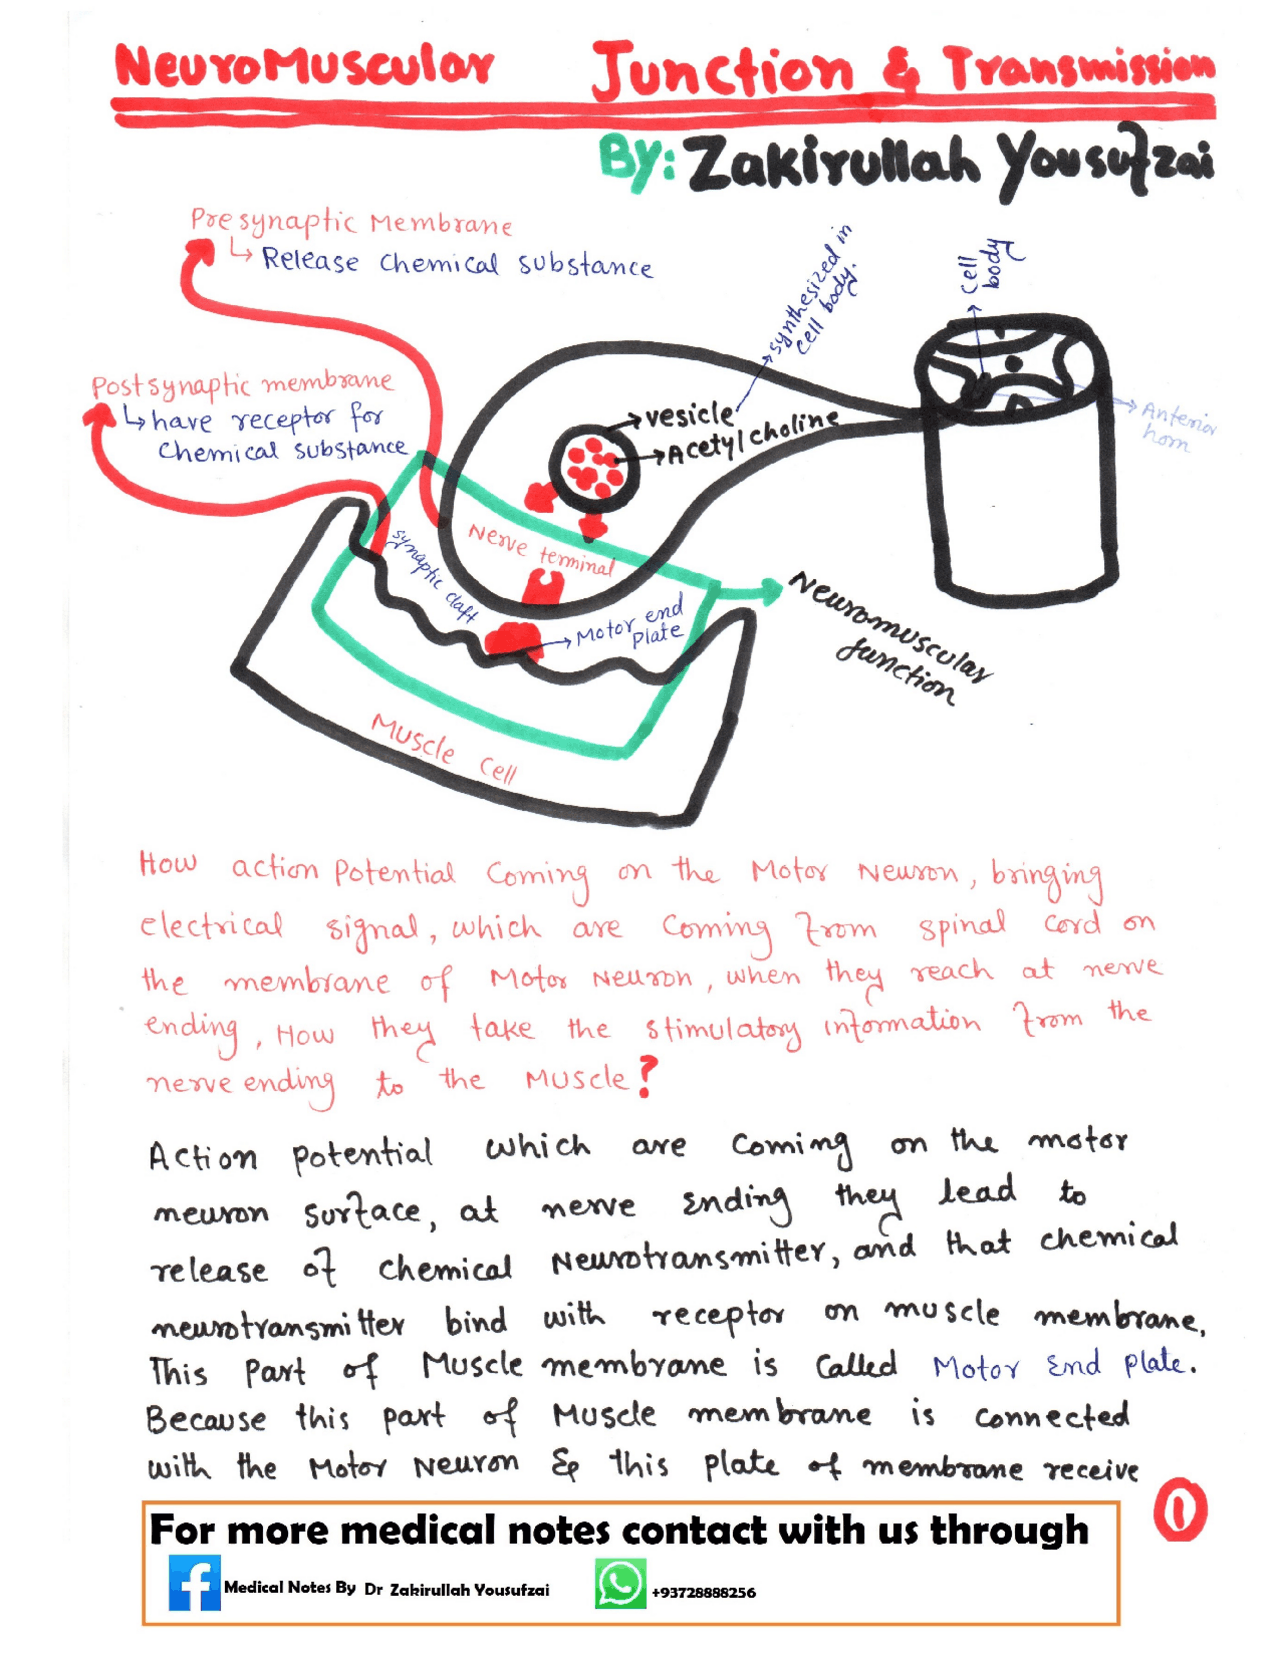 NeuroMuscular Junction & Transmission
By: Zakirullah Yousufzai
Presynaptic Membrane
↳ Release chemical substance
Postsynaptic membrane
↳ have receptor for
chemical substance
synthesized in
cell body.
cell
body
Anterior
horn
vesicle
Acetylcholine
Nerve terminal
synaptic claft
Motor end
plate
Neuromuscular
Junction
Muscle cell
How action Potential Coming on the Motor Neuron, bringing
electrical signal, which are coming from spinal cord on
the membrane of Motor Neuron, when they reach at nerve
ending, How they take the stimulatory information from the
nerve ending to the Muscle?
Action potential which are coming on the motor
neuron surface, at nerve Ending they lead to
release of chemical Neurotransmitter, and that chemical
neurotransmitter bind with receptor on muscle membrane.
This Part of Muscle membrane is Called Motor End plate.
Because this part of Muscle membrane is connected
with the Motor Neuron & this plate of membrane receive
1
For more medical notes contact with us through
Medical Notes By Dr Zakirullah Yousufzai
+93728888256